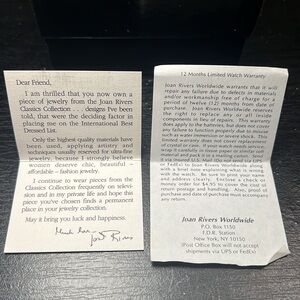 Dear Friend,
I am thrilled that you now own a
piece of jewelry from the Joan Rivers
Classics Collection . . . designs I've been
told, that were the deciding factor in
placing me on the International Best
Dressed List.
Only the highest quality materials have
been used, applying artistry and
techniques usually reserved for ultra-fine
jewelry, because I strongly believe
women deserve chic, beautiful –
affordable – fashion jewelry.
I continue to wear pieces from the
Classics Collection frequently on tele-
vision and in my private life and hope this
piece you've chosen finds a permanent
place in your jewelry collection.
May it bring you luck and happiness.
Joan Rivers
12 Months Limited Watch Warranty
Joan Rivers Worldwide warrants that it will
repair any failure due to defects in materials
and/or workmanship free of charge for a
period of twelve (12) months from date of
purchase. Joan Rivers Worldwide reserves
the right to replace any or all inside
components in lieu of repair. This warranty
does apply to the battery. It does not apply to
any failure to function properly due to misuse
such as water immersion or severe shock. This
limited warranty does not cover replacement
of crystal or case. If your watch needs service,
with a brief note explaining what is wrong
with the watch. Be sure to print your name
and address clearly. Enclose a check or
money order for $4.95 to cover the cost of
return postage and handling. Also, proof of
purchase must accompany your watch.
Joan Rivers Worldwide
P.O. Box 1150
F.D.R. Station
New York, NY 10150
(Post Office Box will not accept
shipments via UPS or FedEx)